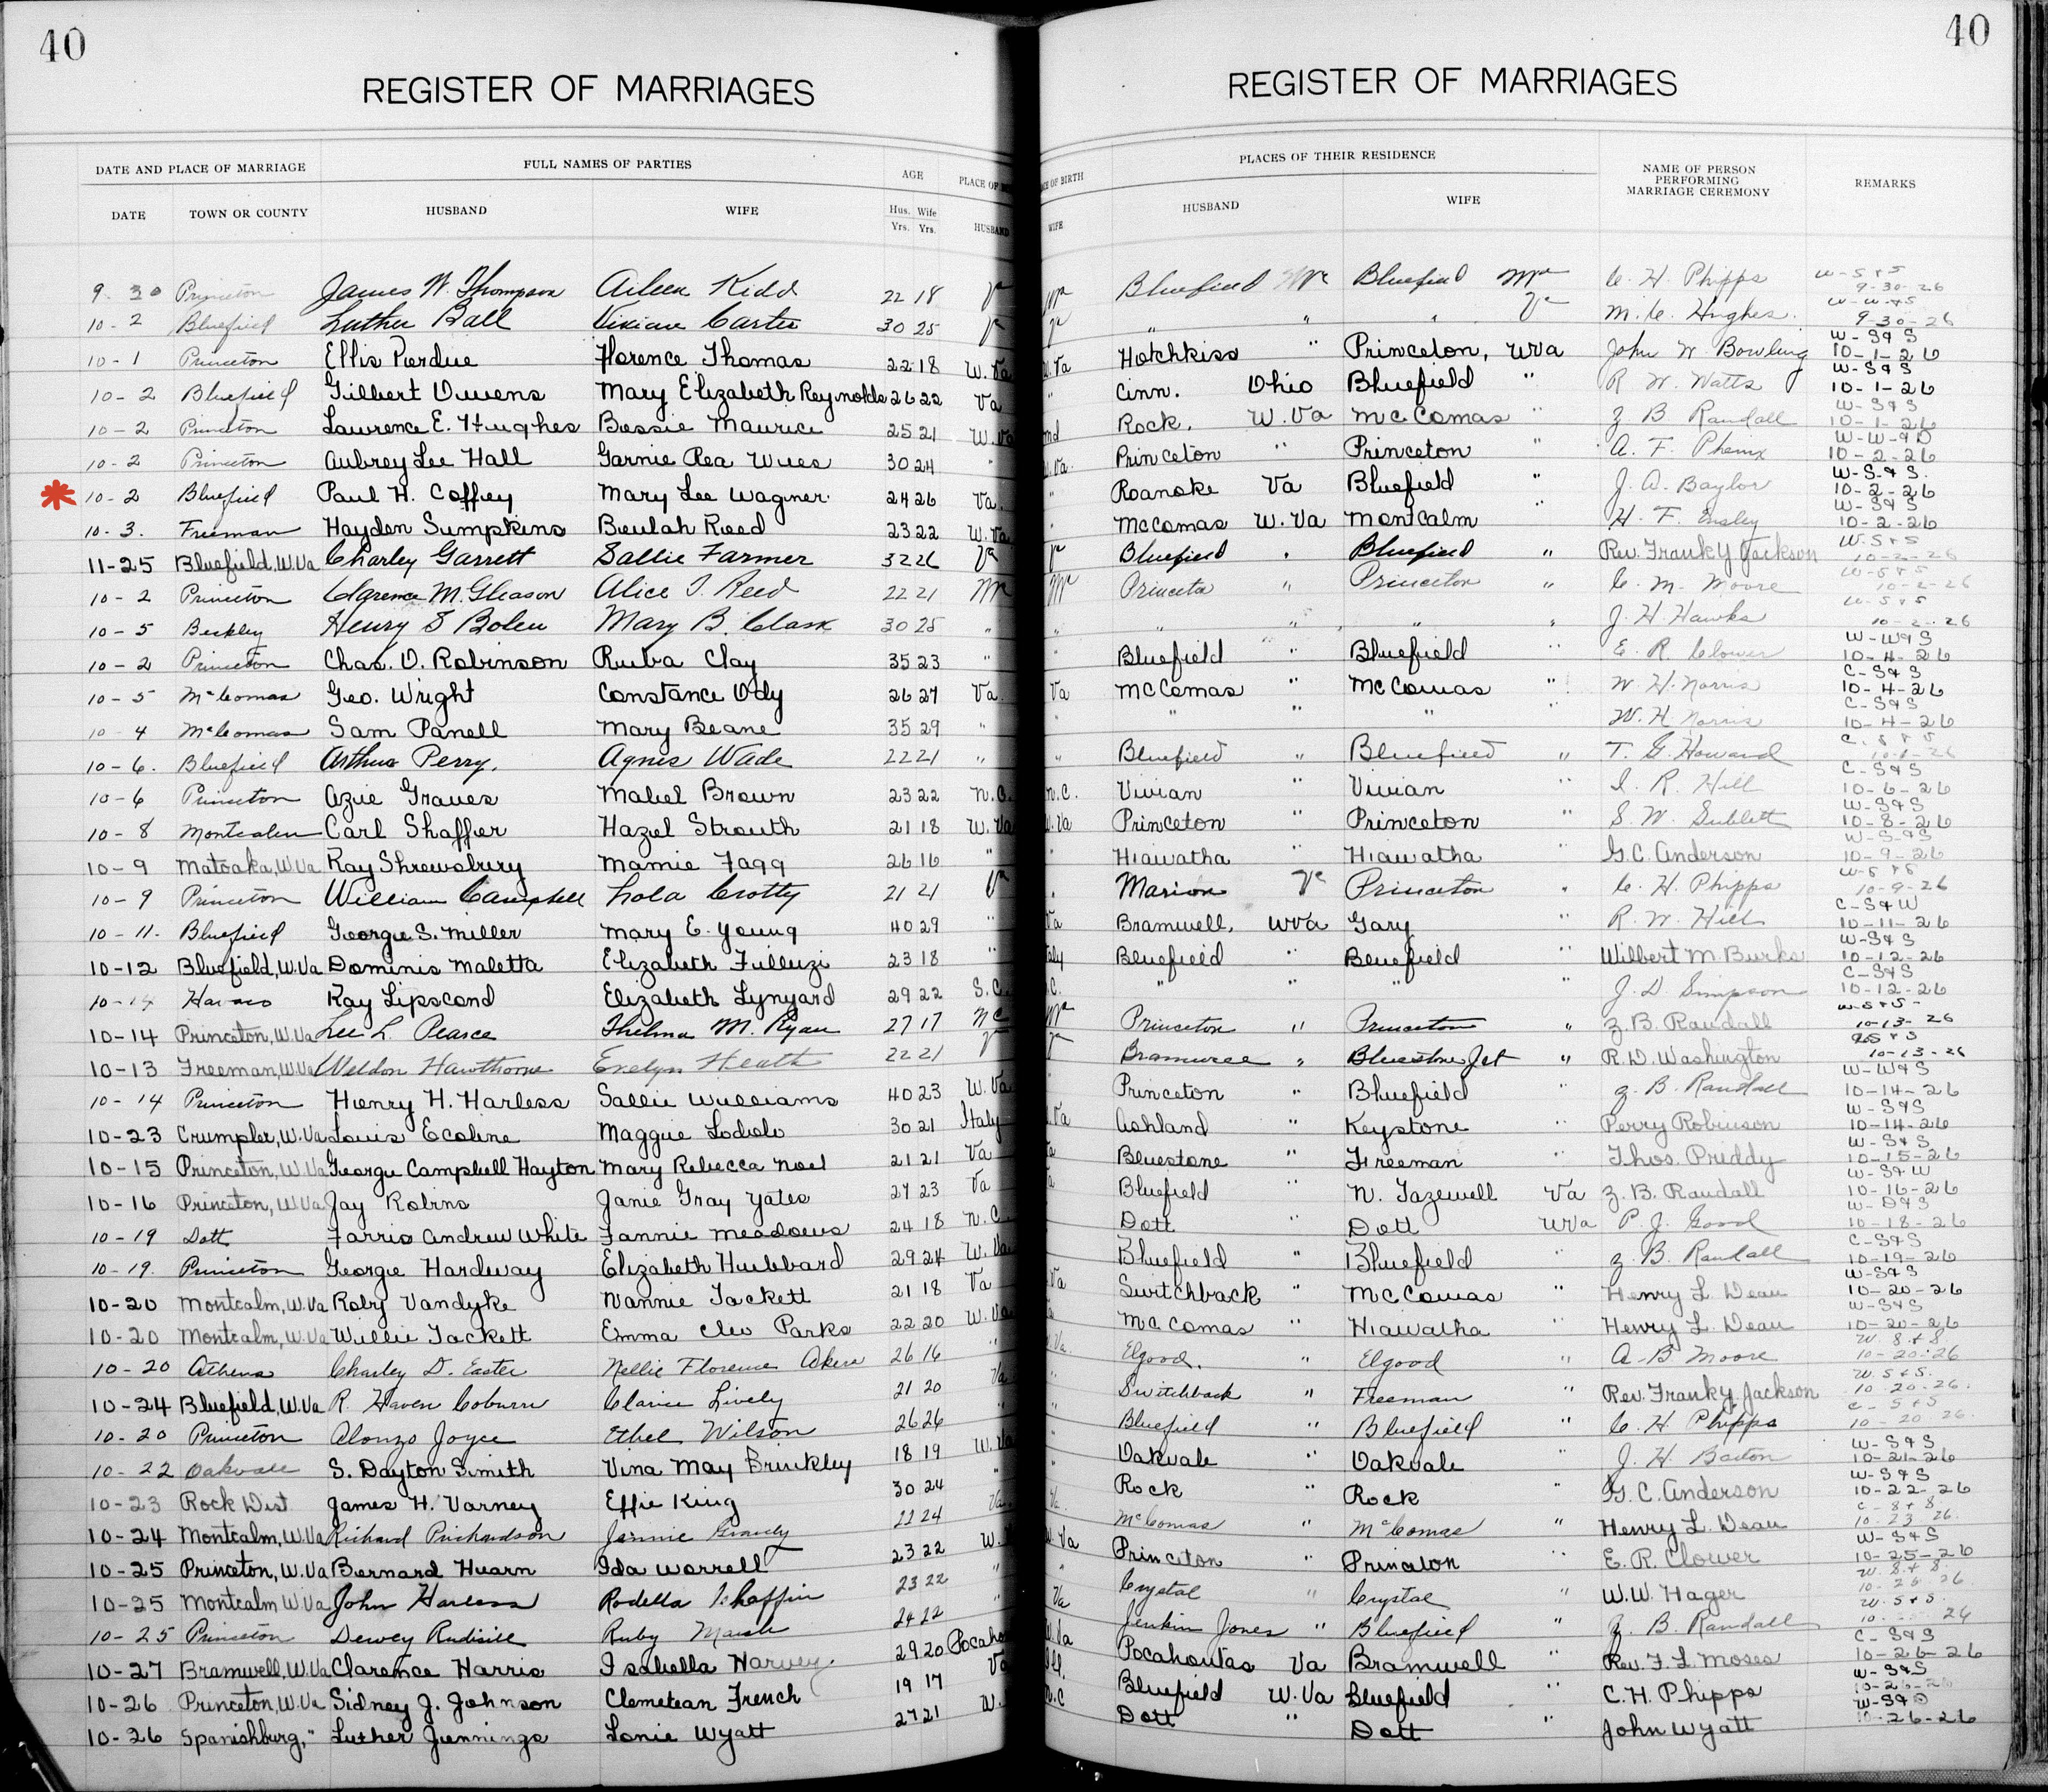 40
REGISTER OF MARRIAGES
40
REGISTER OF MARRIAGES
DATE AND PLACE OF MARRIAGE FULL NAMES OF PARTIES AGE PLACE OF BIRTH PLACES OF THEIR RESIDENCE NAME OF PERSON PERFORMING MARRIAGE CEREMONY REMARKS
DATE TOWN OR COUNTY HUSBAND WIFE Hus. Yrs. Wife Yrs. HUSBAND WIFE HUSBAND WIFE
9-30 Princeton James W. Thompson Aileen Kidd 22 18 Bluefield Bluefield C. H. Phipps W-S&S 9-30-26
10-2 Bluefield Luther Ball Vivian Carter 30 25 " " " Va M. C. Hughes. W-W&S 9-30-26
10-1 Princeton Ellis Perdue Florence Thomas 22 18 W. Va W. Va Hotchkiss " Princeton, WVa John W. Bowling W-S&S 10-1-26
10-2 Bluefield Gilbert Owens Mary Elizabeth Reynolds 26 22 Va " Cinn. Ohio Bluefield " R. W. Watts W-S&S 10-1-26
10-2 Princeton Lawrence E. Hughes Bessie Maurice 25 21 W. Va md Rock, W. Va McComas " Z B Randall W-S&S 10-1-26
10-2 Princeton Aubrey Lee Hall Garnie Rea Wiles 30 24 " W. Va. Princeton " Princeton " A. F. W-W-&D 10-2-26
10-2 Bluefield Paul H. Coffey Mary Lee Wagner 24 26 Va. " Roanoke Va Bluefield " J. A. Baylor W-S-&S. 10-2-26
10-3. Freeman Hayden Sumpkins Beulah Reed 23 22 W. Va " McComas W. Va Montcalm " H. F. Ensley W-S&S 10-2-26
11-25 Bluefield, W. Va Charley Garrett Sallie Farmer 32 26 Va Bluefield " Bluefield " Rev. Frank Y Jackson W-S&S 10-2-26
10-2 Princeton Clarence M. Gleason Alice J. Reed 22 21 Princeton " Princeton " C. M. Moore W-S&S 10-2-26
10-5 Beckley Henry S Bolen Mary B. Clark 30 25 " " " " " " J. H. Hawks W-S&S 10-2-26
10-2 Princeton Chas. O. Robinson Ruba Clay 35 23 " " Bluefield " Bluefield " E. R. Clower W-W&S 10-4-26
10-5 McComas Geo. Wright Constance Ody 26 27 Va. Va McComas " McComas " W. H. Norris C-S&S 10-4-26
10-4 McComas Sam Panell Mary Beane 35 29 " " " " " W. H. Norris C-S&S 10-4-26
10-6. Bluefield Arthur Perry. Agnes Wade 22 21 " " Bluefield " Bluefield " T. G. Howard C. S&S 10-6-26
10-6 Princeton Azie Graves Mabel Brown 23 22 N. C. N. C. Vivian " Vivian " I. R. Hill C-S&S 10-6-26
10-8 Montcalm Carl Shaffer Hazel Strouth 21 18 W. Va W. Va Princeton " Princeton " S. W. Sublett W-S&S 10-8-26
10-9 Matoaka, W. Va Ray Shrewsbury Mamie Fagg 26 16 " " Hiawatha " Hiawatha " G. C. Anderson W-S-&S 10-9-26
10-9 Princeton William Campbell Lola Crotty 21 21 Va " Marion Va Princeton " C. H. Phipps W-S&S 10-9-26
10-11. Bluefield George S. Miller Mary E. Young 40 29 " Va Bramwell, WVa Gary R. W. Hill C-S&W 10-11-26
10-12 Bluefield, W. Va Dominis Maletta Elizabeth Filluzi 23 18 " Italy Bluefield " Bluefield " Wilbert M. Burks W-S&S 10-12-26
10-14 Ray Lipscond Elizabeth Lynyard 29 22 S. C. S. C. " " " " J. D. Simpson C-S&S 10-12-26
10-14 Princeton, W. Va Lee L. Pearce Thelma M. Ryan 27 17 N C Princeton " Princeton " Z. B. Randall W-S&S 10-13-26
10-13 Freeman, W. Va Weldon Hawthorne Evelyn Heath 22 21 Va Bramwell " Bluestone Jct " R. D. Washington 10-13-26
10-14 Princeton Henry H. Harless Sallie Williams 40 23 W. Va " Princeton " Bluefield " Z. B. Randall W-W&S 10-14-26
10-23 Crumpler, W. Va Louis Ecoline Maggie Lodolo 30 21 Italy W. Va Ashland " Keystone " Perry Robinson W-S&S 10-14-26
10-15 Princeton, W. Va George Campbell Hayton Mary Rebecca Noel 21 21 Va Va Bluestone " Freeman " Thos. Priddy W-S&S 10-15-26
10-16 Princeton, W. Va Jay Robins Janie Gray Yates 27 23 Va Va Bluefield " N. Tazewell Va Z. B. Randall W-S&W 10-16-26
10-19 Dott Farris Andrew White Fannie Meadows 24 18 N. C. Dott " Dott WVa P. J. Good W-D&S 10-18-26
10-19. Princeton George Hardway Elizabeth Hubbard 29 24 W. Va Bluefield " Bluefield " Z. B. Randall C-S&S 10-19-26
10-20 Montcalm, W. Va Roby Vandyke Nannie Tackett 21 18 Va Va Switchback " McComas " Henry L. Dean W-S&S 10-20-26
10-20 Montcalm, W. Va Willie Tackett Emma Cleo Parks 22 20 W. Va McComas " Hiawatha " Henry L. Dean W-S&S 10-20-26
10-20 Athens Charley D. Easter Nellie Florence Akers 26 16 " W. Va. Elgood. " Elgood " A. B. Moore W. S&S 10-20-26
10-24 Bluefield, W. Va R. Haven Coburn Clarice Lively 21 20 Va " Switchback " Freeman " Rev. Frank Y. Jackson W. S&S. 10-20-26.
10-20 Princeton Alonzo Joyce Ethel Wilson 26 26 " " Bluefield " Bluefield " C. H. Phipps C-S&S 10-20-26.
10-22 Oakvale S. Dayton Smith Vina May Brinkley 18 19 W. Va " Oakvale " Oakvale " J. H. Barton W-S&S 10-21-26
10-23 Rock Dist James H. Varney Effie King 30 24 " Rock " Rock " G. C. Anderson W-S&S 10-22-26
10-24 Montcalm, W. Va Richard Prichardson Jennie Gravely 22 24 Va. Va. McComas " McComas " Henry L. Dean C-S&S 10-23-26.
10-25 Princeton, W. Va Bernard Hearn Ida Worrell 23 22 W. W. Va Princeton " Princeton " E. R. Clower W-S&S 10-25-26
10-25 Montcalm W. Va John Harless Rodella Chaffin 23 22 " " Crystal " Crystal " W. W. Hager W. S&S 10-26
10-25 Princeton Dewey Rudisill Ruby Marsh 24 22 " Va Jenkin Jones " Bluefield " Z. B. Randall W. S&S. 10- 26
10-27 Bramwell, W. Va Clarence Harris Isabella Harvey 29 20 Pocahontas W. Va Pocahontas Va Bramwell " Rev. F. L. Moses C-S&S 10-26-26
10-26 Princeton, W. Va Sidney J. Johnson Clemetean French 19 17 Va Ill. Bluefield W. Va Bluefield " C. H. Phipps W-S&S 10-26-26
10-26 Spanishburg, " Luther Jennings Lonie Wyatt 27 21 W. N. C Dott " Dott " John Wyatt W-S&D 10-26-26